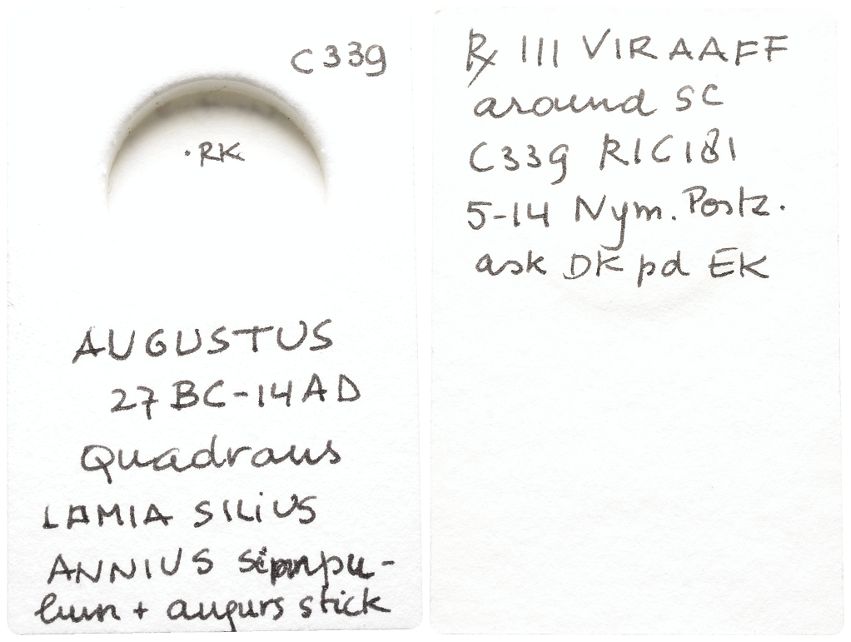 C339
·RK
AUGUSTUS
27 BC-14 AD
Quadrans
LAMIA SILIUS
ANNIUS simpu-
lum + augurs stick
℞ III VIR AAFF
around SC
C339 RIC181
5-14 Nym. Postz.
ask DK pd EK